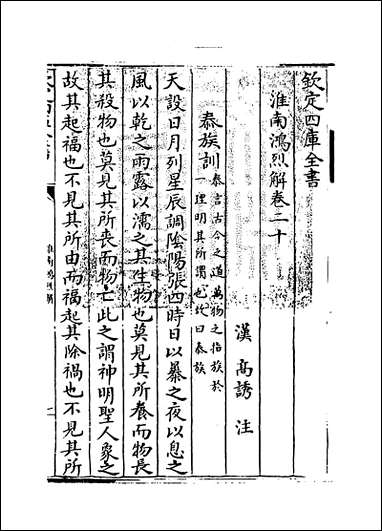 欽定四庫全書
淮南鴻烈解卷二十
漢 高誘 注
泰族訓
泰言古今之道萬物之指族於
一理明其所謂也故曰泰族
天設日月列星辰調陰陽張四時日以暴之夜以息之
風以乾之雨露以濡之其生物也莫見其所養而物長
其殺物也莫見其所喪而物亡此之謂神明聖人象之
故其起福也不見其所由而福起其除禍也不見其所